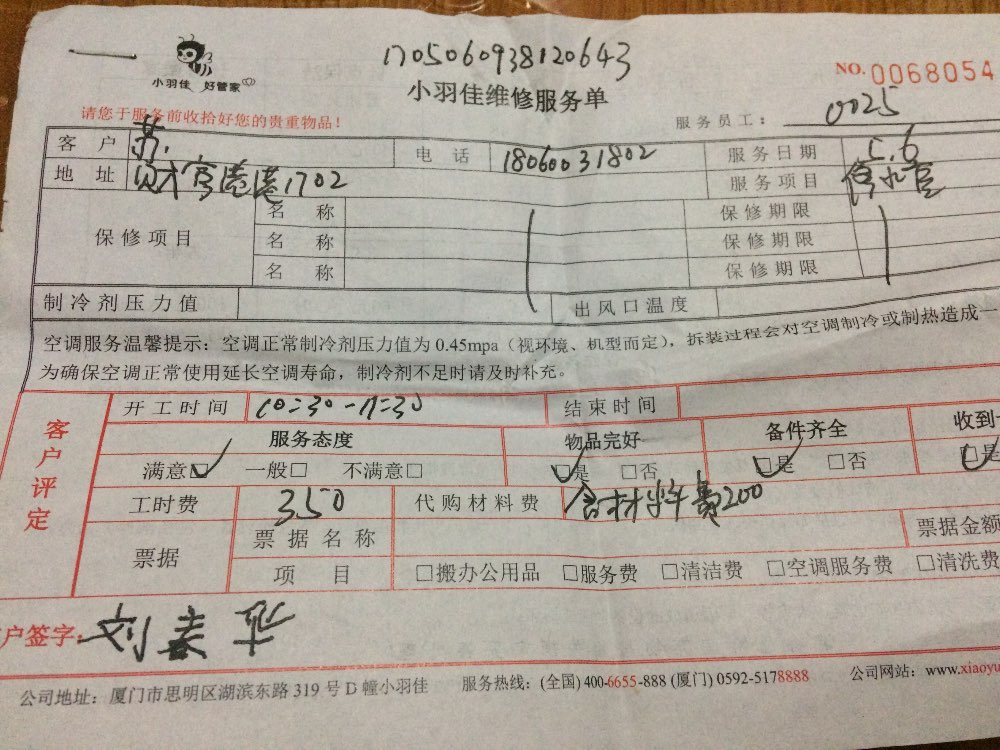 1705060938120643
小羽佳 好管家
小羽佳维修服务单
NO.0068054
请您于服务前收拾好您的贵重物品!
服务员工: 0025
客户 苏. 电话 18060031802 服务日期 5.6
地址 财富港湾1702 服务项目 修水管
保修项目
名称 保修期限
名称 保修期限
名称 保修期限
制冷剂压力值 出风口温度
空调服务温馨提示:空调正常制冷剂压力值为0.45mpa(视环境、机型而定),拆装过程会对空调制冷或制热造成一
为确保空调正常使用延长空调寿命,制冷剂不足时请及时补充。
客户评定
开工时间 10:30-17:30 结束时间
服务态度 物品完好 备件齐全 收到
满意☑ 一般□ 不满意□ ☑是 □否 ☑是 □否 ☑是
工时费 350 代购材料费 含材料费200
票据 票据名称 票据金额
项目 □搬办公用品 □服务费 □清洁费 □空调服务费 □清洗费
户签字: 刘素华
公司地址:厦门市思明区湖滨东路319号D幢小羽佳 服务热线:(全国)400-6655-888 (厦门)0592-5178888 公司网站:www.xiaoyu